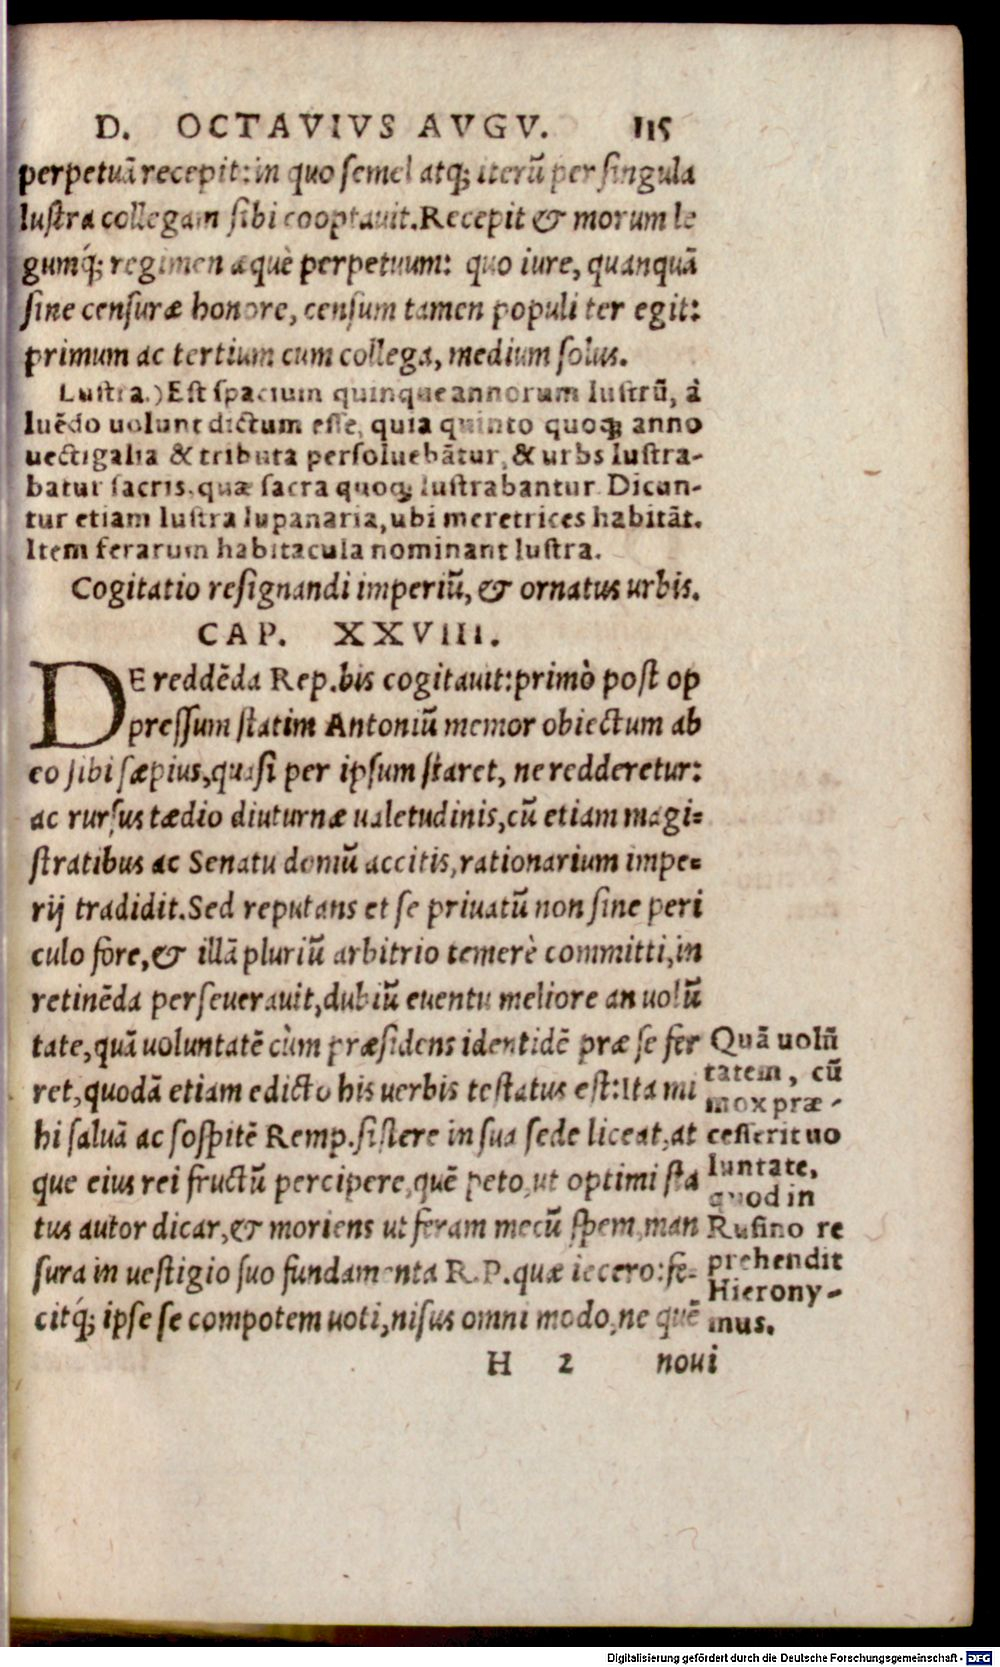 D. OCTAVIVS AVGV. 115
perpetuā recepit: in quo semel atq; iterū per singula
lustra collegam sibi cooptauit. Recepit & morum le
gumq́; regimen æquè perpetuum: quo iure, quanquā
sine censuræ honore, censum tamen populi ter egit:
primum ac tertium cum collega, medium solus.
Lustra.) Est spacium quinque annorum lustrū, à
luēdo uolunt dictum esse, quia quinto quoq; anno
uectigalia & tributa persoluebātur, & urbs lustra-
batur sacris, quæ sacra quoq; lustrabantur. Dicun-
tur etiam lustra lupanaria, ubi meretrices habitāt.
Item ferarum habitacula nominant lustra.
Cogitatio resignandi imperiū, & ornatus urbis.
CAP. XXVIII.
DE reddēda Rep. bis cogitauit: primò post op
pressum statim Antoniū memor obiectum ab
eo sibi sæpius, quasi per ipsum staret, ne redderetur:
ac rursus tædio diuturnæ ualetudinis, cū etiam magi-
stratibus ac Senatu domū accitis, rationarium impe-
rij tradidit. Sed reputans et se priuatū non sine peri
culo fore, & illā pluriū arbitrio temerè committi, in
retinēda perseuerauit, dubiū euentu meliore an uolū
tate, quā uoluntatē cùm præsidens identidē præ se fer
ret, quodā etiam edicto his uerbis testatus est: Ita mi
hi saluā ac sospitē Remp. sistere in sua sede liceat, at
que eius rei fructū percipere, quē peto, ut optimi sta
tus autor dicar, & moriens ut feram mecū spem, man
sura in uestigio suo fundamenta R. P. quæ iecero: fe-
citq́; ipse se compotem uoti, nisus omni modo, ne quē
Quā uolū
tatem, cū
mox præ-
cesserit uo
luntate,
quod in
Rufino re
prehendit
Hierony-
mus.
H 2 noui
Digitalisierung gefördert durch die Deutsche Forschungsgemeinschaft - DFG